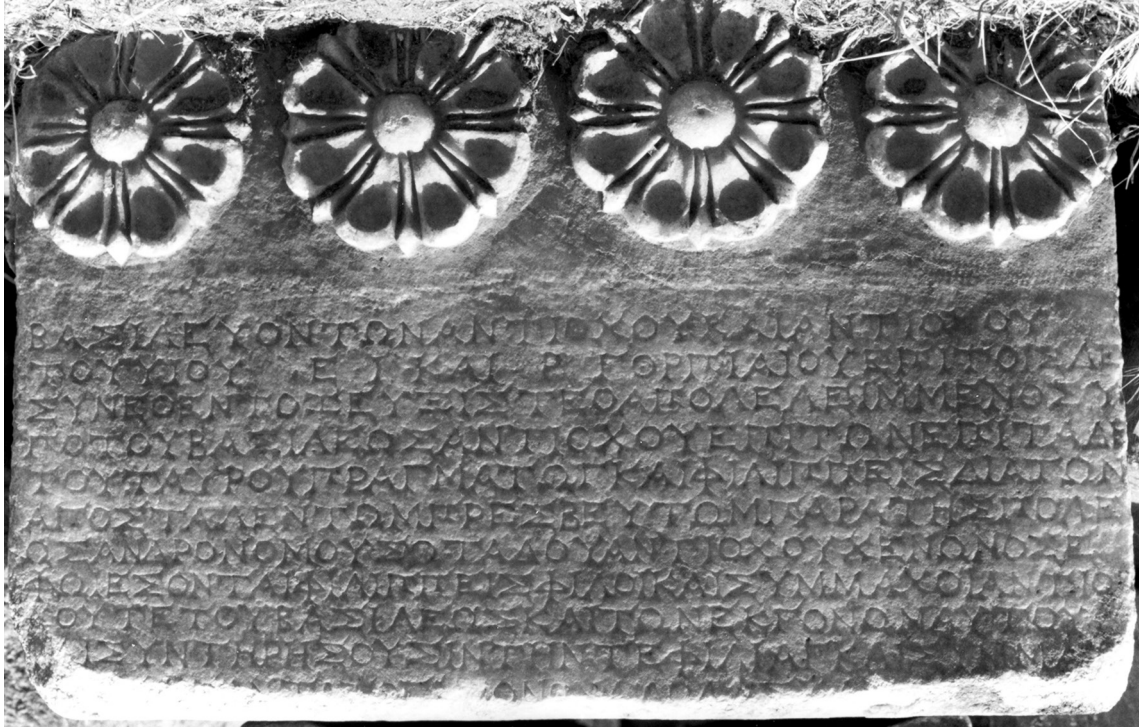 ΒΑΣΙΛΕΥΟΝΤΩΝΑΝΤΙΟΧΟΥΚΑΙΑΝΤΙΟΧΟΥ
ΤΟΥΥΙΟΥ Ε Ι ΚΑΙ Ρ ΓΟΡΠΙΑΙΟΥΕΠΙΤΟΙΣΔΕ
ΣΥΝΕΘΕΝΤΟΞΕΥΞΙΣΤΕΟΑΠΟΛΕΛΕΙΜΜΕΝΟΣΥ
ΠΟΤΟΥΒΑΣΙΛΕΩΣΑΝΤΙΟΧΟΥΕΠΙΤΩΝΕΠΙΤΑΔΕ
ΤΟΥΤΑΥΡΟΥΠΡΑΓΜΑΤΩΓΚΑΙΦΙΛΙΠΠΕΙΣΔΙΑΤΩΝ
ΑΠΟΣΤΑΛΕΝΤΩΜΠΡΕΣΒΕΥΤΩΜ
ΑΝΤΙΟΧΟΥΞΕΝΩΝΟΣΕ
ΦΩΕΣΟΝΤΑΙ ΦΙΛΟΙΚΑΙΣΥΜΜΑΧΟΙΑΝΤΙΟ
ΧΟΥΤΕΤΟΥΒΑΣΙΛΕΩΣΚΑΙΤΩΝΕΚΓΟΝΩΝΑΥΤΟΥ
ΣΥΝΤΗΡΗΣΟΥΣΙΝΤΗΝΤΕΦΙΛΙΑΝΚΑΙΣΥΜ